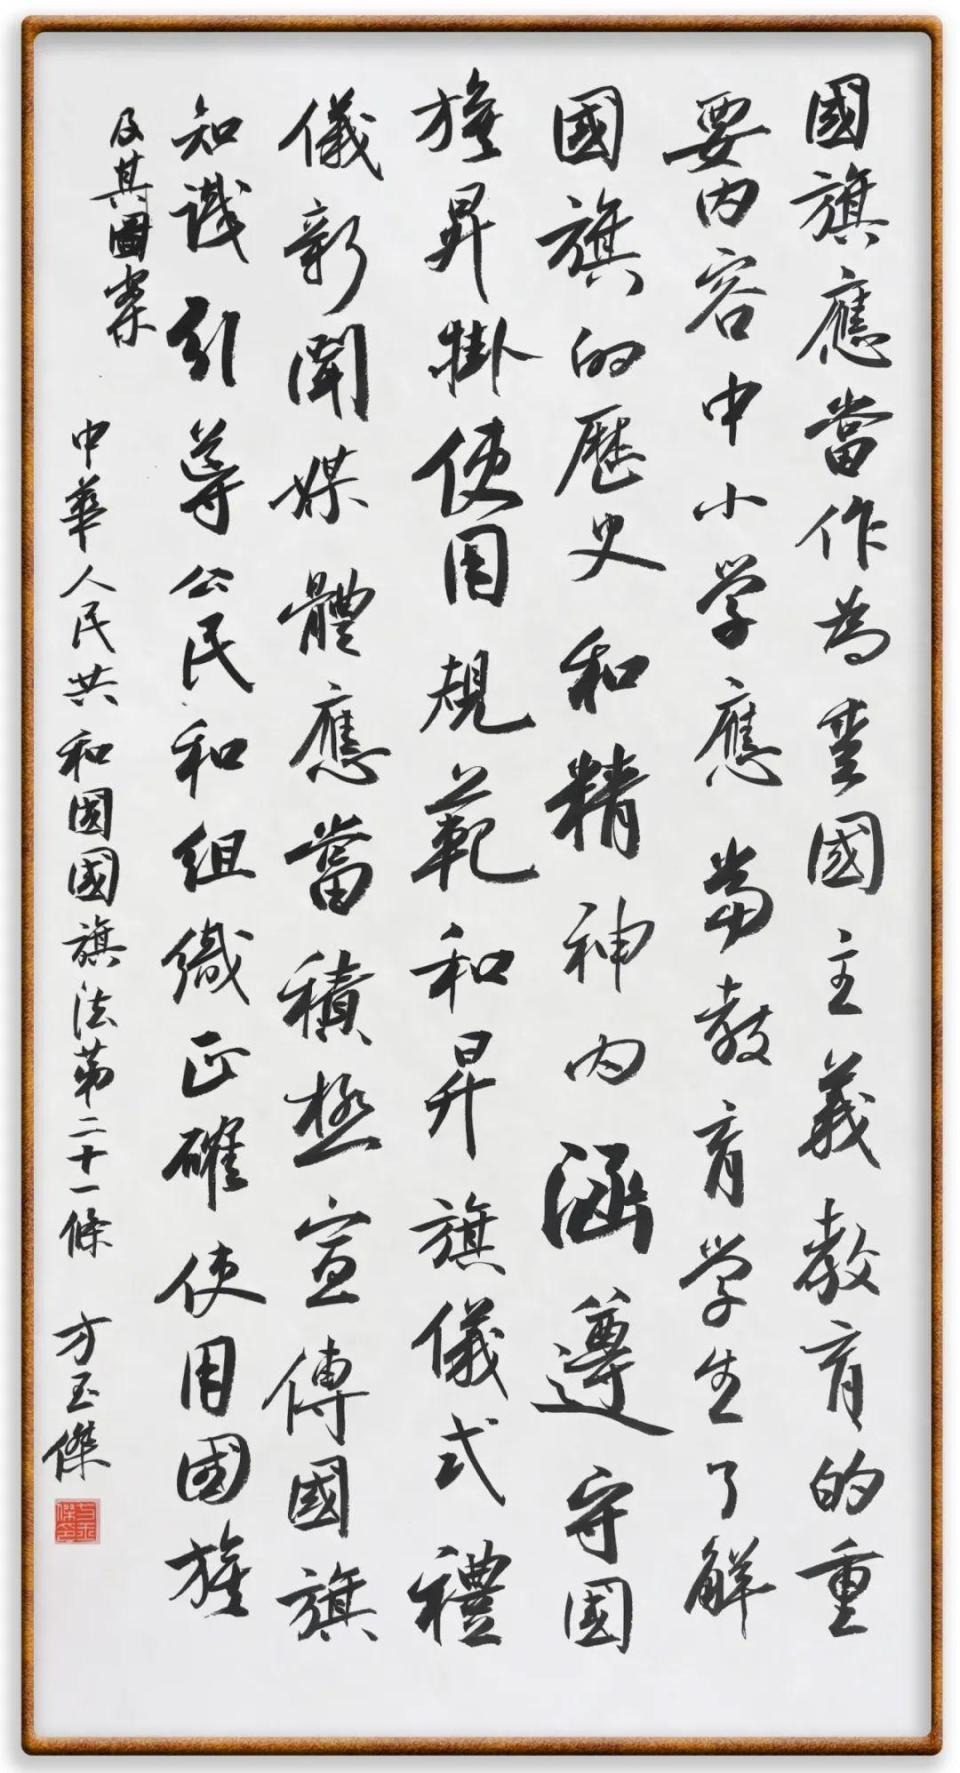 國旗應當作為愛國主義教育的重
要内容中小学應當教育学生了解
國旗的歷史和精神内涵遵守國
旗昇掛使用規範和昇旗儀式禮
儀新聞媒體應當積極宣傳國旗
知識引導公民和組織正確使用國旗
及其圖案 中華人民共和國國旗法第二十一條 方玉傑